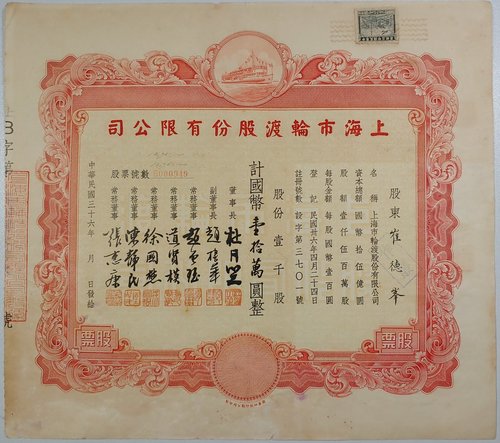 上海市輪渡股份有限公司
股東 崔德峯
名稱 上海市輪渡股份有限公司
資本總額 國幣拾伍億圓
股額 壹仟伍百萬股
每股金額 每股國幣壹百圓
登記 民國卅六年四月二十四日
註冊號數 設字第三七〇一號
股份壹千股
計國幣壹拾萬圓整
董事長 杜月笙
副董事長
常務董事
常務董事
常務董事 徐國懋
常務董事
常務董事
股票號數 S000949
中華民國三十六年 月 日發給
股票
股票